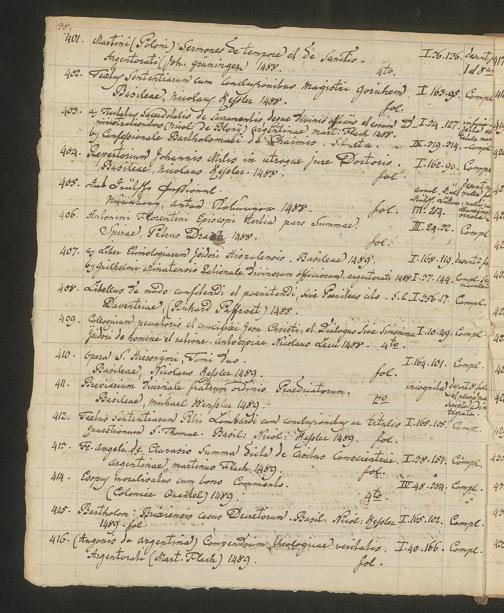 401. Martini (Poloni) Sermones de tempore et de Sanctis. I.36.136.
Argentorati (Joh. Grüninger) 1488. 4to.
402. Textus Sententiarum cum conclusionibus magistri Gorichem I.163.95. Compl.
Basileae, Nicolaus Kessler 1488. fol.
403. a) Tractatus Sacerdotalis de Sacramentis, deque Divinis officiis et eorum I.34.127.
administrationibus (Nicol: de Blony) Argentinae Mart. Flach 1488.
b) Confessionale Bartholomaei de Chaimis. IX.219.214. Compl.
404. Repertorium Johannis Milis in utroque jure Doctoris. I.162.90. Compl.
Basileae, Nicolaus Kessler 1488. fol.
405.
Nürnberg, Anton Koburger 1488. fol. III.24.
406. Antonini Florentini Episcopi tertia pars Summae. III.24.22. Compl.
Spirae, Petrus Drach 1488. fol.
407. a) Liber Etimologiarum Isidori Hispalensis. Basileae 1489. I.168.119.
b) Guilhelmi Rationale divinorum officiorum. Argentorati 1488 I.37.144.
408. Libellus de modo confitendi et poenitendi, sive Poeniteas cito. S.L. I.236.17. Compl.
Daventriae, (Richard Paffroet) 1488.
409. Colloquium peccatoris et crucifixi Jesu Christi, et Dialogus sive Sinonima I.10.49. Compl.
Isidori de homine et ratione. Antverpiae Nicolaus Leeu 1488. 4to.
410. Opera S. Hieronymi, Tomi duo. I.164.101. Compl.
Basileae, Nicolaus Kessler 1489. fol.
411. Breviarium fratrum ordinis Praedicatorum. incognita
Basileae, Michael Wenssler 1489.
412. Textus Sententiarum Petri Lombardi cum conclusionibus ac titulis I.165.105. Compl.
quaestionum S. Thomae. Basil: Nicol: Kessler 1489. fol.
413. Fr. Angeli de Clavasio Summa dicta de Casibus Conscientiae. I.38.157. Compl.
Argentinae, Martinus Flach 1489. fol.
414. Esopus moralisatus cum bono Commento. III.48.234. Compl.
(Coloniae Quentel) 1489. 4to.
415. Bartholom: Brixiensis Casus Decretorum. Basil. Nicol: Kessler I.165.102. Compl.
1489. fol.
416. (Hugonis de Argentina) Compendium theologicae veritatis. I.40.166. Compl.
Argentorati (Mart. Flach) 1489. fol.